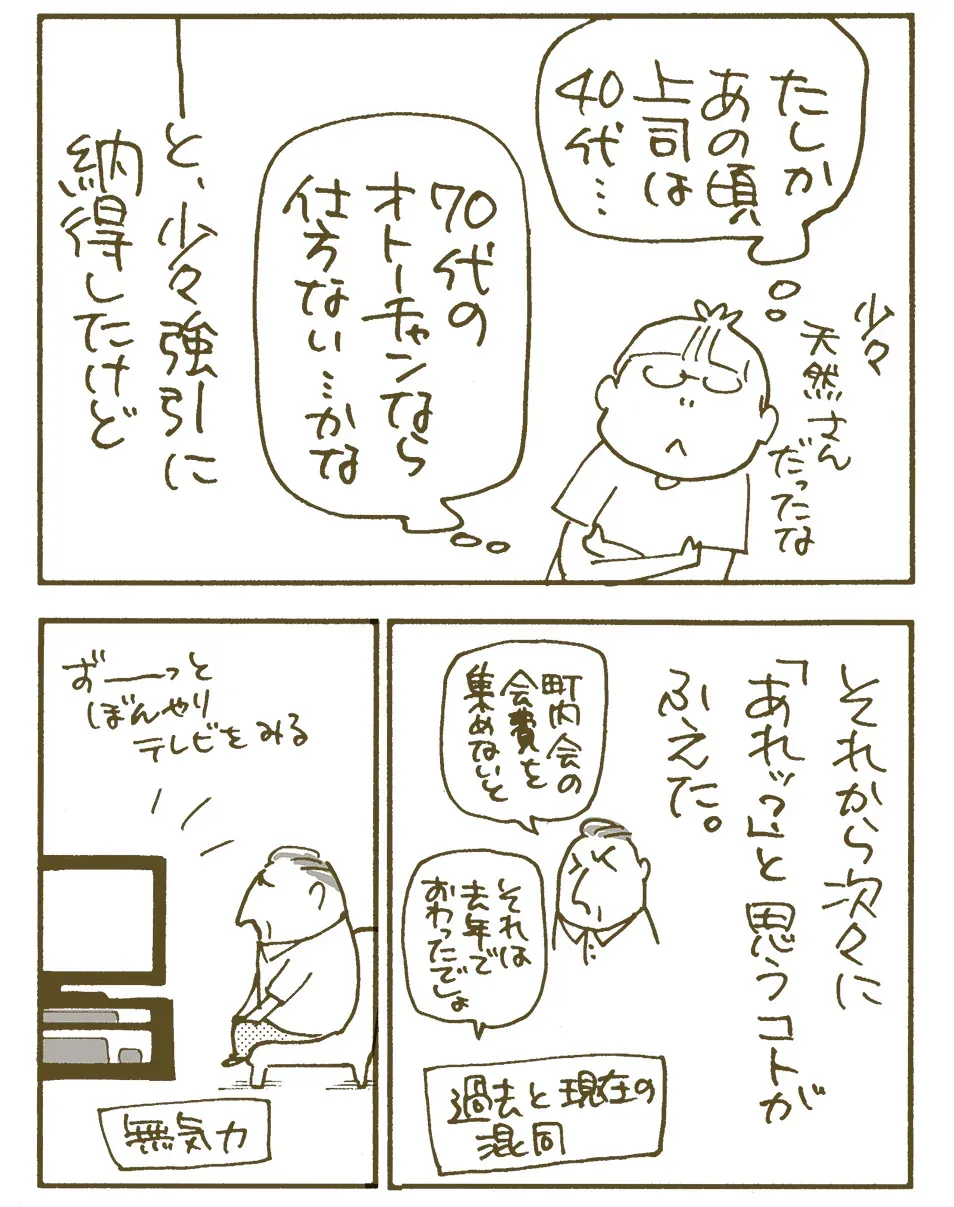 たしか
あの頃
上司は
40代…
少々
天然さん
だったな
70代の
オトーチャンなら
仕方ない…かな
と、少々強引に
納得したけど
それから次々に
「あれッ?」と思うコトが
ふえた。
町内会の
会費を
集めないと
それは
去年で
おわったでしょ
過去と現在の
混同
ずーーっと
ぼんやり
テレビをみる
無気力